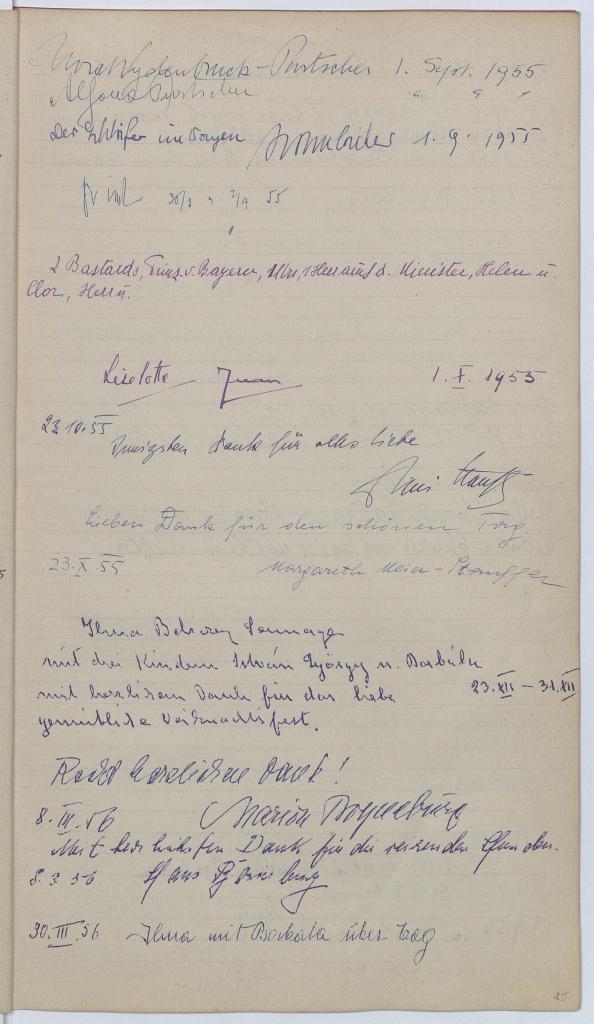 Nora Wydenbruck-Purtscher 1. Sept. 1955
Alfons Purtscher " " "
Der Schläfer im Wagen 1.9.1955
30/8 2/9 55
2 Bastards, Prinz v. Bayern, d. Minister, Helen u.
Clor, Herr u.
Liselotte Juan 1.X.1955
23.10.55
Innigsten Dank für alles liebe
Lieben Dank für den schönen Tag
23.X.55 Margareth Meier-Stauffer
Ilma
mit drei Kindern István György u. Barbála
mit herzlichem Dank für das liebe 23.XII – 31.XII
gemütliche Weihnachtsfest.
Recht herzlichen Dank!
8.III.56 Marion
Mit herzlichsten Dank für die reizenden Stunden.
8.3.56 Hans
30.III.56 Ilma mit Barbala über Tag
25